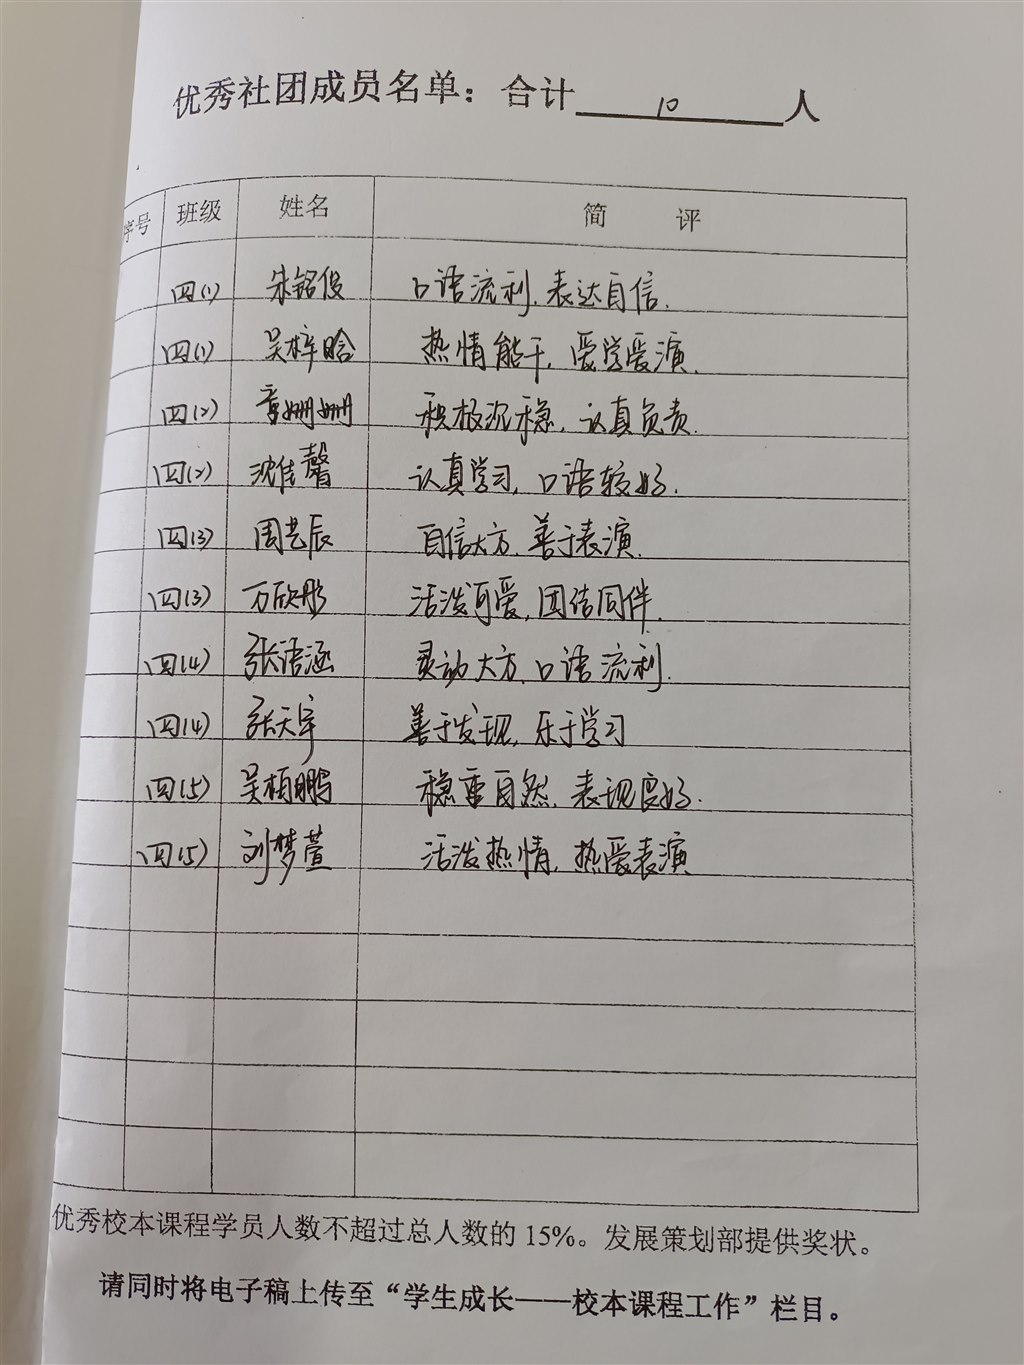 优秀社团成员名单：合计 10 人
序号 班级 姓名 简 评
四(1) 朱铭俊 口语流利,表达自信.
四(1) 吴梓晗 热情能干,爱学爱演.
四(2) 章姗姗 积极沉稳,认真负责.
四(2) 沈佳馨 认真学习,口语较好.
四(3) 周艺辰 自信大方,善于表演.
四(3) 万欣彤 活泼可爱,团结同伴.
四(4) 张语涵 灵动大方,口语流利.
四(4) 张天宇 善于发现,乐于学习
四(5) 吴柏鹏 稳重自然,表现度好.
四(5) 刘梦萱 活泼热情,热爱表演
优秀校本课程学员人数不超过总人数的15%。发展策划部提供奖状。
请同时将电子稿上传至“学生成长——校本课程工作”栏目。